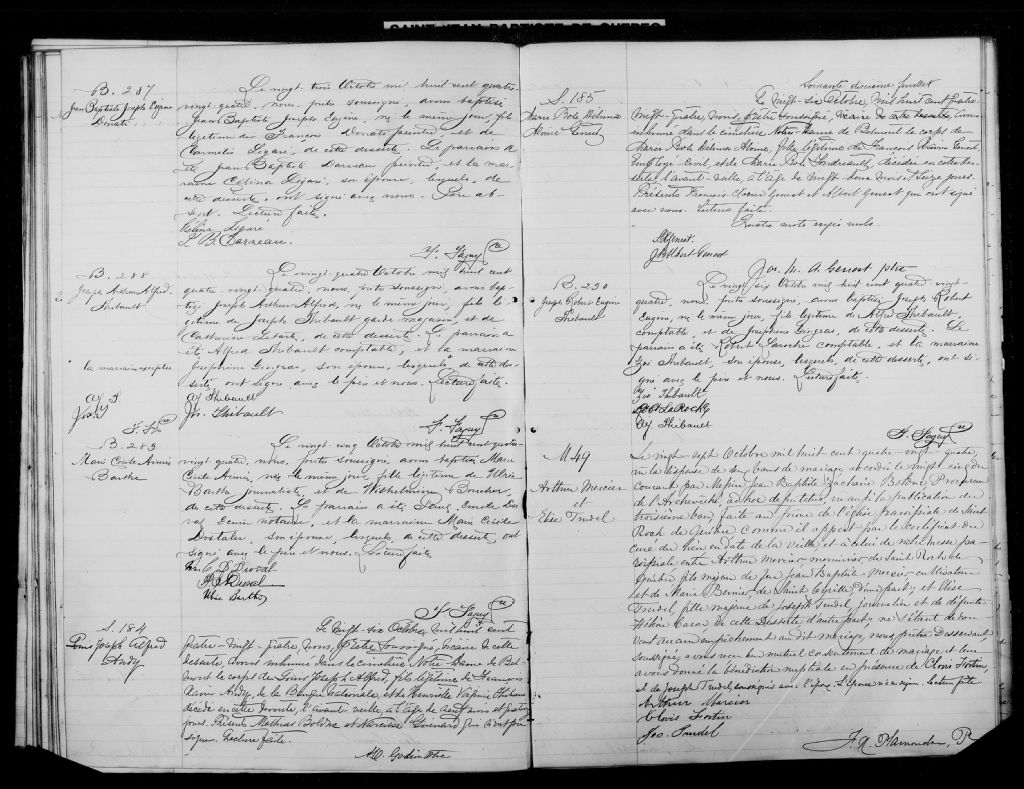 SAINT JEAN BAPTISTE DE QUEBEC
B. 287
Jean Baptiste Joseph Eugène
Donati
Le vingt trois Octobre mil huit cent quatre
vingt quatre, nous, prêtre soussigné, avons baptisé
Jean Baptiste Joseph Eugène, né le même jour, fils
légitime de François Donati peintre, et de
de cette desserte. Le parrain a
été Jean Baptiste Darveau peintre, et la mar
raine Célina son épouse, lesquels, de
cette desserte, ont signé avec nous. Père ab-
sent. Lecture faite.
J. B. Darveau.
F. Faguy
B. 288
Joseph Arthur Alfred
Thibault
Le vingt quatre Octobre mil huit cent
quatre vingt quatre, nous, prêtre soussigné, avons bap-
tisé Joseph Arthur Alfred, né le même jour, fils lé-
gitime de Joseph Thibault garde magasin, et de
Catherine de cette desserte. Le parrain a
été Alfred Thibault comptable, et la marraine
Joséphine Gingras, son épouse, lesquels de cette des-
serte, ont signé avec le père et nous. Lecture faite.
la marraine exceptée
Alf Thibault
Jos. Thibault
F. Faguy
B. 289
Marie Cécile Aimée
Barthe
Le vingt cinq Octobre mil huit cent quatre
vingt quatre, nous, prêtre soussigné, avons baptisé Marie
Cécile Aimée, née le même jour, fille légitime de Ulric
Barthe journaliste, et de Wilhelmine Boucher,
de cette desserte. Le parrain a été
notaire, et la marraine Marie Cécile
Dostaler, son épouse, lesquels, de cette desserte, ont
signé avec le père et nous. Lecture faite
Duval
Duval
Ulric Barthe
F. Faguy
S. 184
Louis Joseph Alfred
Andy
Le vingt-six Octobre, mil huit cent
quatre-vingt-quatre, Nous, Prêtre soussigné, vicaire de cette
desserte, avons inhumé dans le cimetière Notre-Dame de Bel-
mont le corps de Louis Joseph Alfred, fils légitime de François
Andy, de la Banque Nationale, et de Henriette Virginie
décédé en cette desserte, l'avant-veille, à l'âge de neuf mois et quatre
jours. Présents Mathias Bolduc et Narcisse qui n'ont pu
signer. Lecture faite.
Soixante dixième feuillet
S. 185
Marie Rose Delima
Alma Genest
Le vingt-six Octobre, mil huit cent quatre
vingt-quatre, Nous, Prêtre soussigné, vicaire de cette desserte, avons
inhumé dans le cimetière Notre-Dame de Belmont le corps de
Marie Rose Delima Alma, fille légitime de François Genest,
Employé Civil, et de Marie décédée en cette des-
serte l'avant-veille, à l'âge de vingt-deux mois et seize jours.
Présents François Genest et Albert Genest qui ont signé
avec nous. Lecture faite.
Quatre mots rayés nuls.
Genest.
J Albert Genest
Jos. M. A. Genest ptre
B. 290
Joseph Robert Eugène
Thibault
Le vingt six Octobre mil huit cent quatre vingt-
quatre, nous, prêtre soussigné, avons baptisé Joseph Robert
Eugène, né le même jour, fils légitime de Alfred Thibault,
comptable, et de Joséphine Gingras, de cette desserte. Le
parrain a été Robert Laroche comptable, et la marraine
Thibault, son épouse, lesquels, de cette desserte, ont si-
gné avec le père et nous. Lecture faite.
Thibault
LaRoche
Alf Thibault
F. Faguy
M 49
Arthur Mercier
et
Elise Trudel
Le vingt-sept Octobre mil huit cent quatre-vingt-quatre,
vu la dispense de deux bans de mariage accordée le vingt cinq du
courant par Messire Jean Baptiste Zacharie Bolduc Procureur
de l'Archevêché vu aussi la publication du
troisième ban, faite au prône de l'église paroissiale de Saint
Roch de Québec comme il appert par le certificat du
curé du lieu en date de la veille et à celui de notre messe pa-
roissiale entre Arthur Mercier, menuisier, de Saint Roch de
Québec fils mineur de feu Jean Baptiste Mercier cultivateur
et de Marie Bernier de Saint Cyrille, d'une part; et Elise
Trudel, fille majeure de Joseph Trudel, journalier et de défunte
Caron de cette Desserte d'autre part; ne s'étant décou
vert aucun empêchement au dit mariage, nous, prêtre Desservant
soussigné, avons reçu leur mutuel consentement de mariage et leur
avons donné la bénédiction nuptiale en présence de Clovis Fortin,
et de Joseph Trudel, soussignés avec l'époux. L'épouse n'a su signer. Lecture faite
Arthur Mercier
Clovis Fortin
Jos. Trudel
F. X. Plamondon, Ptre